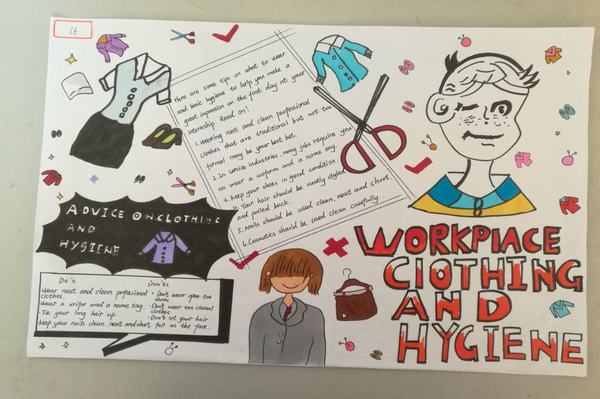 16
Here are some tips on what to wear
and basic hygiene to help you make a
great impression on the first day at your
internship. Read on!
1. Wearing neat and clean professional
clothes that are traditional but not too
formal may be your best bet.
2. In service industries, many jobs require you
on wear a uniform and a name tag.
3. Keep your shoes in good condition.
4. Your hair should be neatly styled
and pulled back.
5. Nails should be used clean, neat and short.
6. Cosmetics should be used clean carefully.
ADVICE ON CLOTHING
AND
HYGIENE
Do's
Wear neat and clean professional
clothes.
Wear a unifor and a name tag.
Tie your long hair up.
keep your nails clean, neat and short
Don'ts
Don't wear open-toe
shoes
Don't wear too casual
clothes
Don't let your hair
fall on the face.
WORKPlACE
ClOTHING
AND
HYGIENE